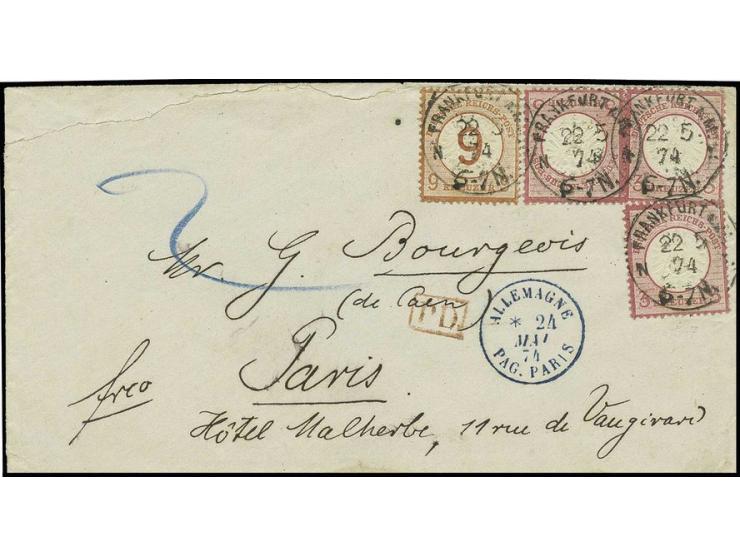 FRANKFURT A.M.
22 5
74
N 6-7N.
REICHS-POST
9
9 KREUZER 9
FRANKFURT A.M.
22 5
N 74
6-7N.
FRANKFURT A.M.
22 5
74
6-7N.
REICHS-POST
FRANKFURT A.M.
22 5
N 74
6-7N.
REICHS-POST
3 KREUZER 3
2
Mr. G. Bourgeois
(de Caen)
P.D.
ALLEMAGNE
* 24
MAI
74
PAG. PARIS
Paris
frco
Hôtel Malherbe, 11 rue de Vaugirard